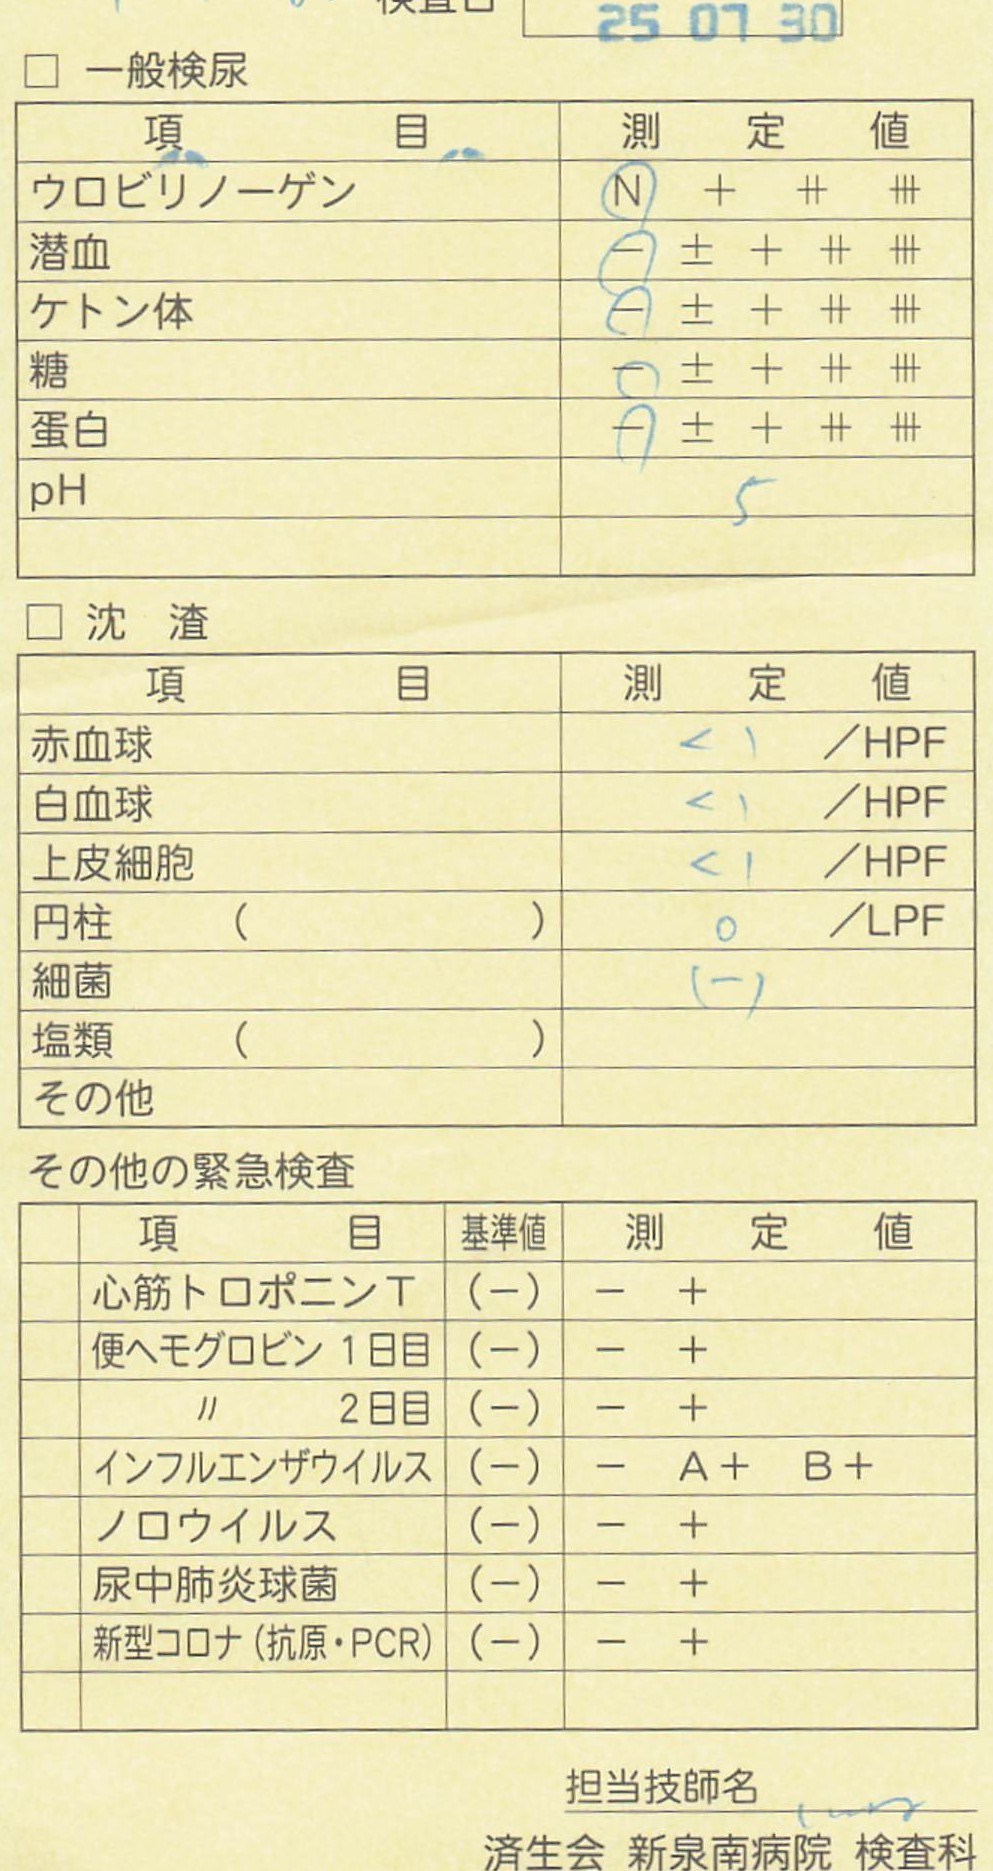 検査日 25 07 30
□ 一般検尿
項 目 測 定 値
ウロビリノーゲン N + ⧺ ⧻
潜血 − ± + ⧺ ⧻
ケトン体 − ± + ⧺ ⧻
糖 − ± + ⧺ ⧻
蛋白 − ± + ⧺ ⧻
pH 5
□ 沈 渣
項 目 測 定 値
赤血球 <1 /HPF
白血球 <1 /HPF
上皮細胞 <1 /HPF
円柱 ( ) 0 /LPF
細菌 (−)
塩類 ( )
その他
その他の緊急検査
項 目 基準値 測 定 値
心筋トロポニンT (−) − +
便ヘモグロビン 1日目 (−) − +
〃 2日目 (−) − +
インフルエンザウイルス (−) − A+ B+
ノロウイルス (−) − +
尿中肺炎球菌 (−) − +
新型コロナ(抗原・PCR) (−) − +
担当技師名
済生会 新泉南病院 検査科